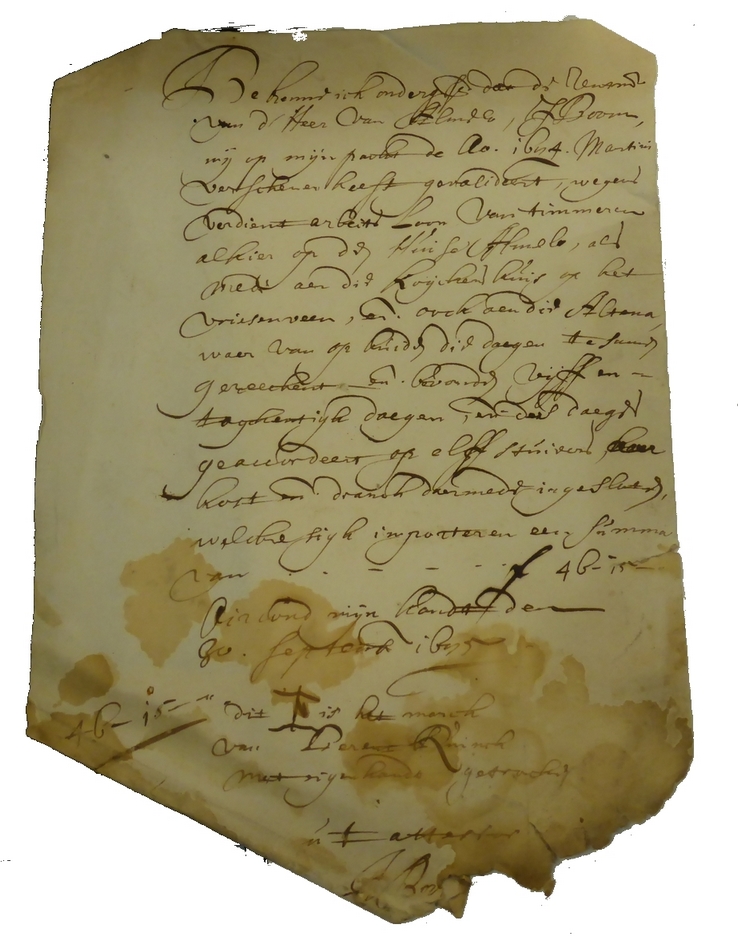 Bekenne ick onderges. dat de Rentmr
van d' Heer van Almelo, J Boom,
mij op mijn pacht de Ao. 1694. Martini
verschenen heeft gevalideert, wegens
verdient arbeits Loon van timmeren
alhier op den Huise Almelo, als
mede aen die huis op het
vriesenveen, en. oock aen die Altena,
waer van op huiden die daegen te samen
gereeckent en. bevonden vijff en
taghentigh daegen, en des daeghs
geaccordeert op elff stuivers,
kost en dranck daermede ingesloten,
welcke sigh importeren een summa
van - - - - f 46-15-
Oirkond mijn handt den
30. Septemb 1695
46-15- dit is het merck
van Berent
met eigen handt getrocken
ut attestor
J Boom